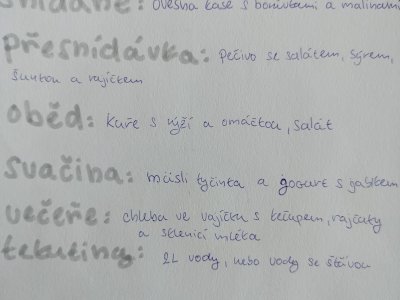 snídaně: Ovesná kaše s borůvkami a malinami
přesnídávka: Pečivo se salátem, sýrem,
šunkou a rajčetem
oběd: Kuře s rýží a omáčkou, salát
svačina: müsli tyčinka a jogurt s jablkem
večeře: chleba ve vajíčku s kečupem, rajčaty
a sklenicí mléka
tekutiny: 2L vody, nebo vody se šťávou